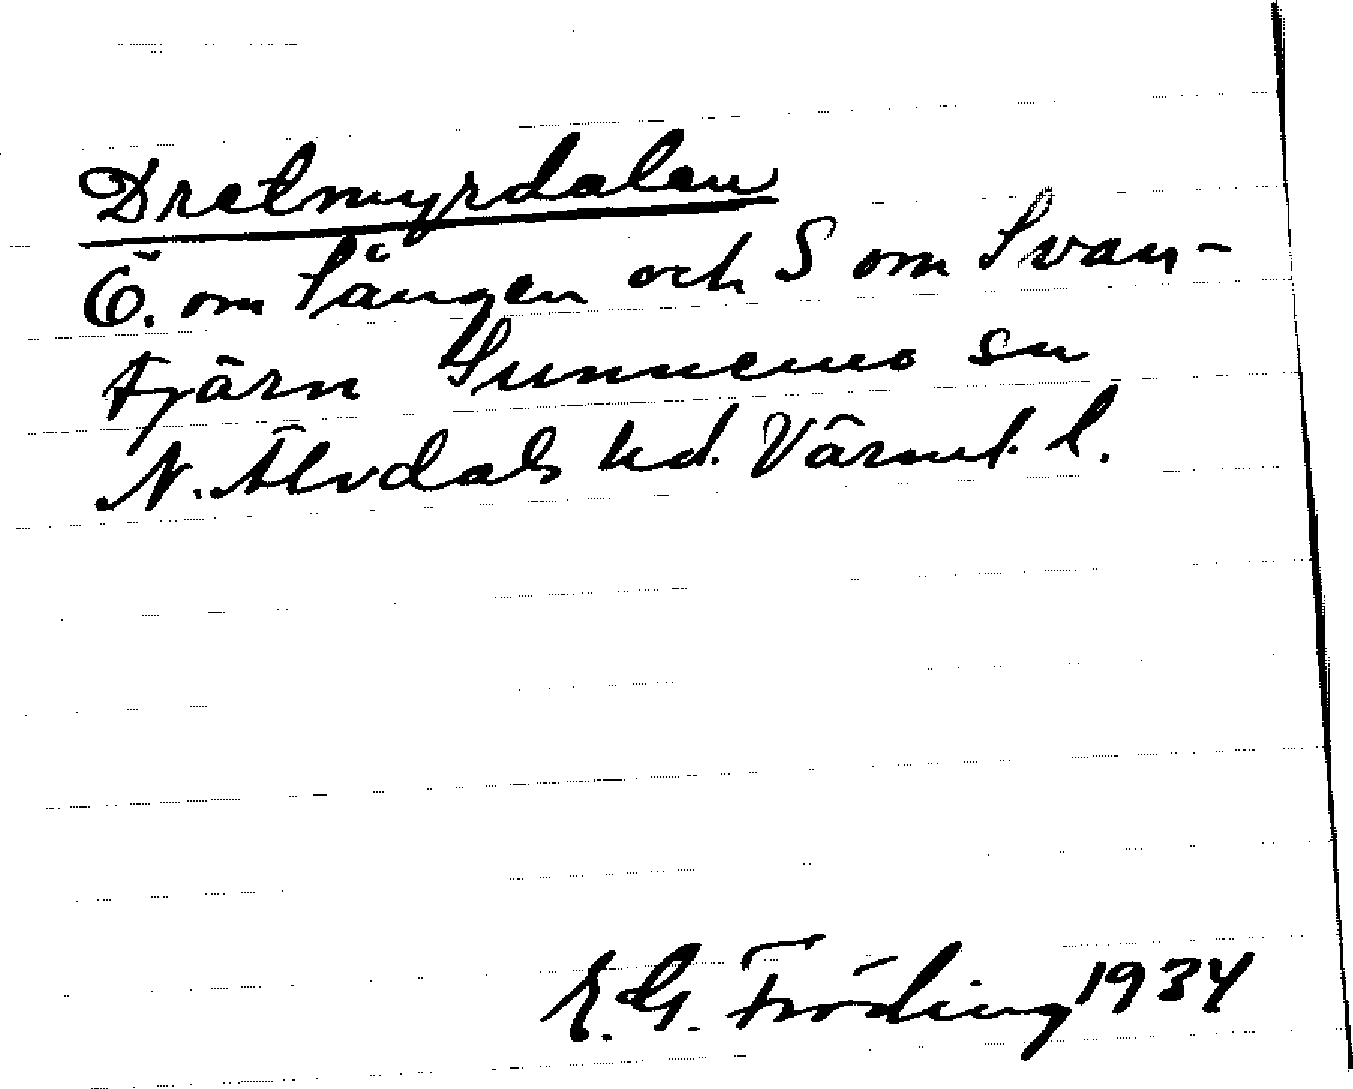 Dretmyrdalen
Ö. om Lången och S om Svan-
tjärn Sunnemo sn
N. Älvdals hd. Värml. l.
E. G. Fröding 1934